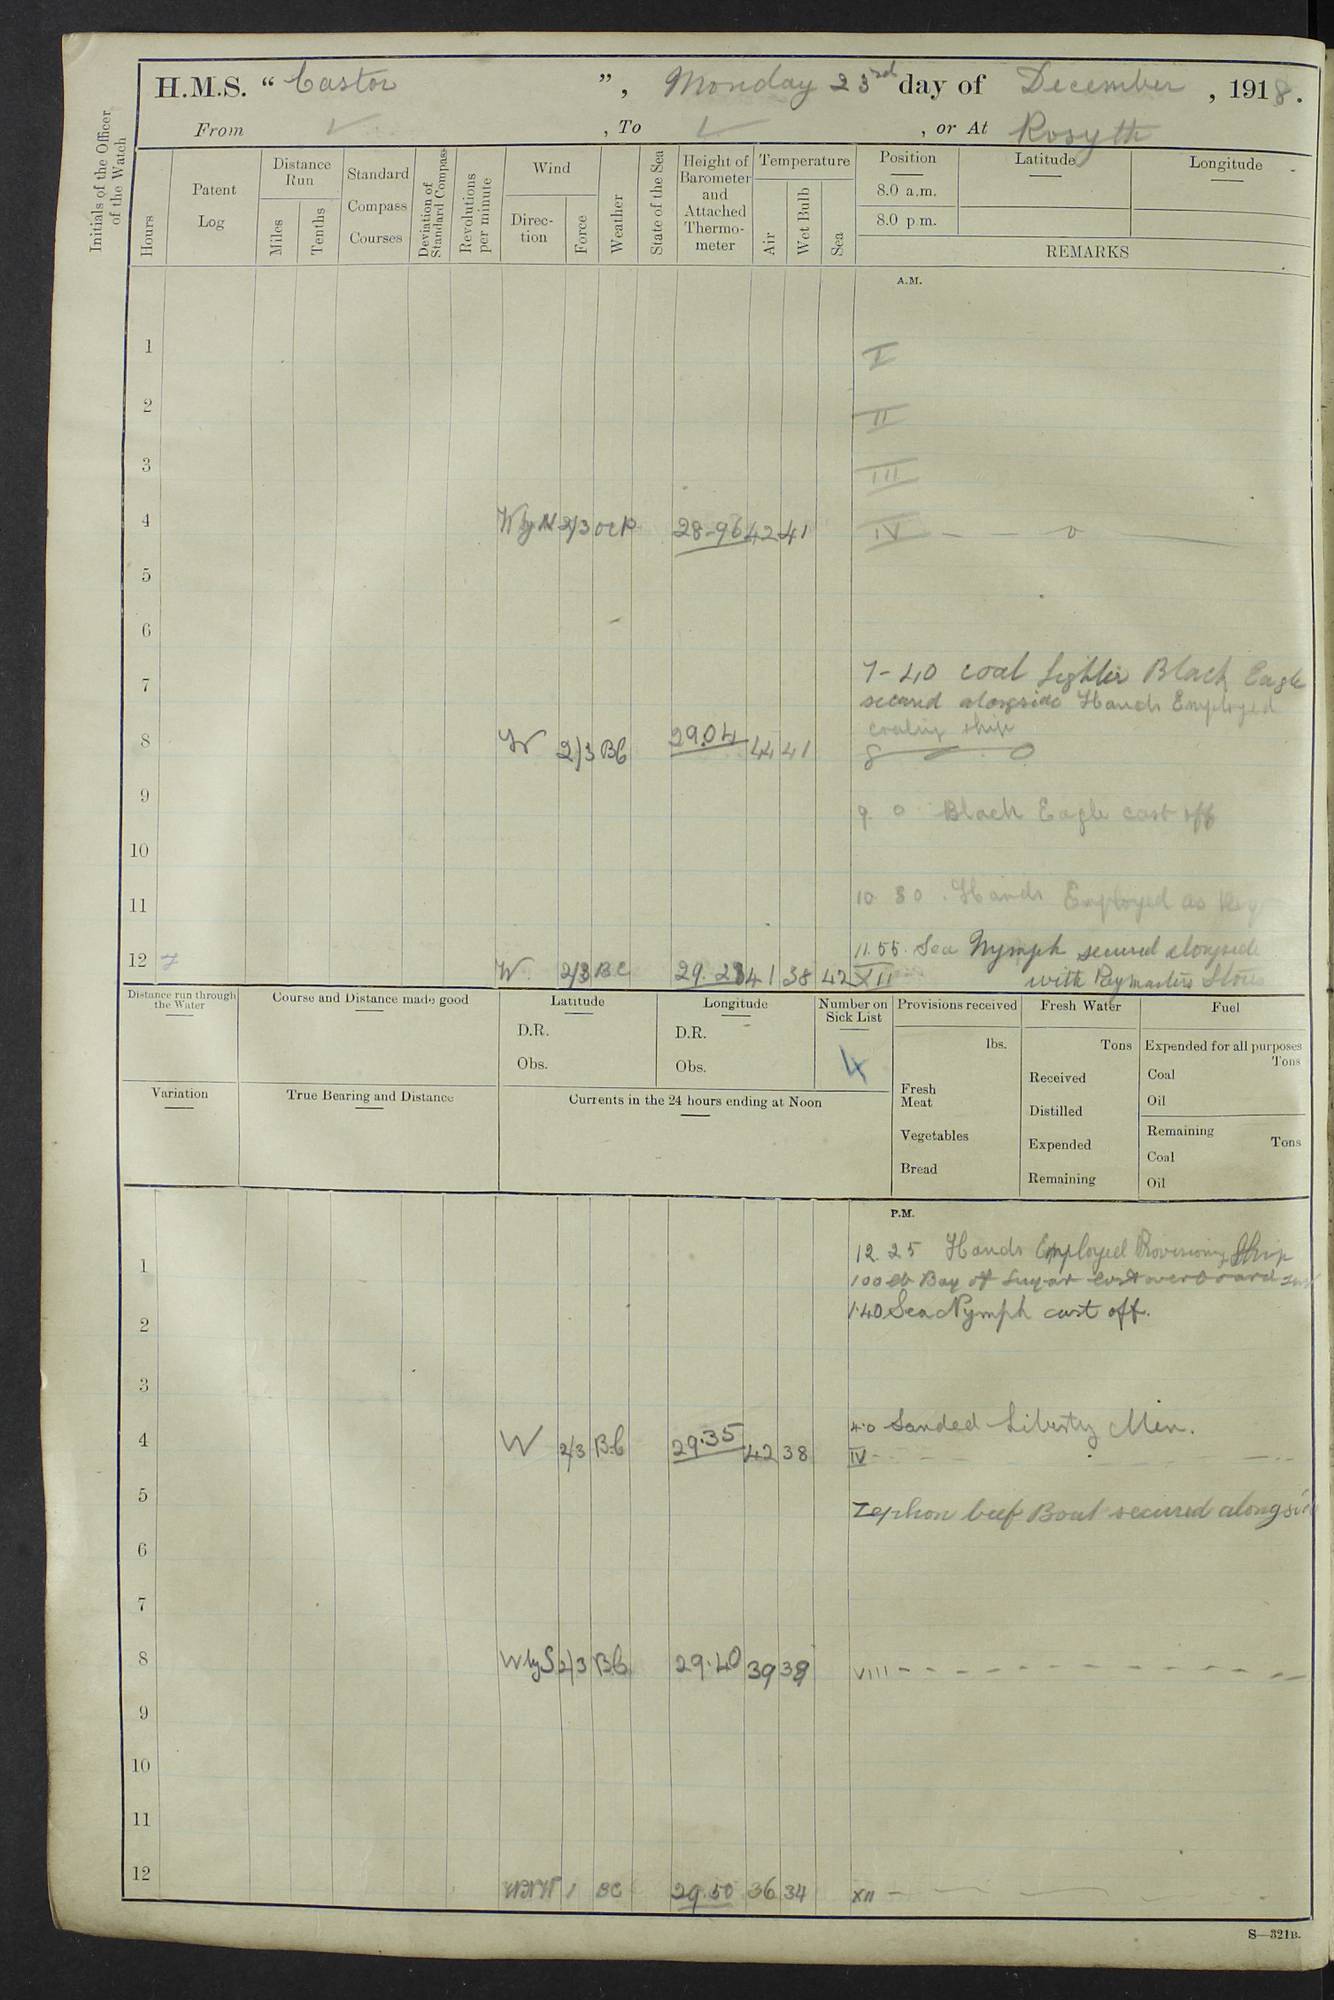 H.M.S. “Castor”, Monday 23rd day of December, 1918.
From ✓, To ✓, or At Rosyth
Initials of the Officer of the Watch
Hours
Patent Log
Distance Run
Miles
Tenths
Standard Compass Courses
Deviation of Standard Compass
Revolutions per minute
Wind
Direction
Force
Weather
State of the Sea
Height of Barometer and Attached Thermometer
Temperature
Air
Wet Bulb
Sea
Position
8.0 a.m.
8.0 p.m.
Latitude
Longitude
REMARKS
A.M.
1 I
2 II
3 III
4 W by N 2/3 ocp 28-96 42 41 IV - - o
5
6
7 7-40 coal Lighter Black Eagle
secured alongside Hands Employed
coaling ship
8 W 2/3 BC 29.04 44 41 8 0
9 9. 0 Black Eagle cast off
10
11 10 30. Hands Employed as Req
11.55. Sea Nymph secured alongside
12 7 W 2/3 BC 29.23 41 38 42 XII with Paymasters Stores
Distance run through the Water
Course and Distance made good
Latitude
D.R.
Obs.
Longitude
D.R.
Obs.
Number on Sick List
4
Provisions received
lbs.
Fresh Meat
Vegetables
Bread
Fresh Water
Tons
Received
Distilled
Expended
Remaining
Fuel
Expended for all purposes
Tons
Coal
Oil
Remaining
Tons
Coal
Oil
Variation
True Bearing and Distance
Currents in the 24 hours ending at Noon
P.M.
12.25 Hands Employed Provisioning Ship
1 100 lb Bag of Sugar lost overboard
2 1.40 Sea Nymph cast off.
3
4.0 Landed Liberty Men.
4 W 2/3 BC 29.35 42 38 IV
5 Zephon beef Boat secured alongside
6
7
8 W by S 2/3 BC 29.40 39 38 VIII
9
10
11
12 WNW 1 BC 29.50 36 34 XII
S—321B.